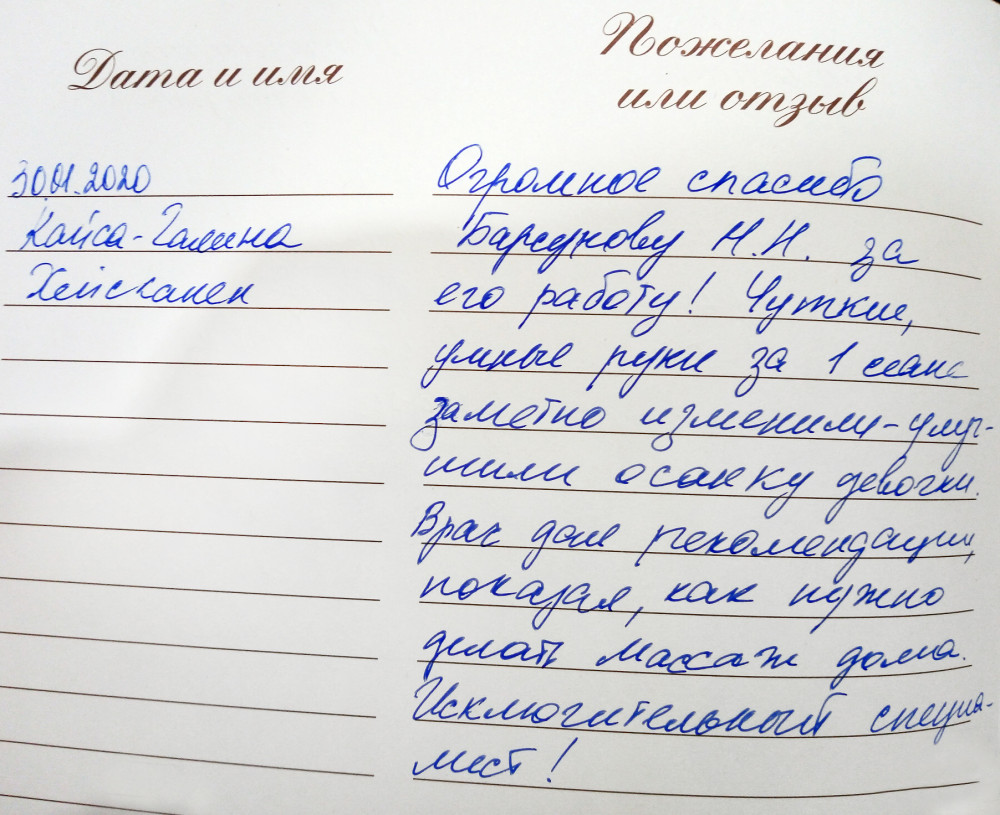 Дата и имя
Пожелания
или отзыв
30.01.2020
Кайса-Галина
Хейсканен
Огромное спасибо
Барсукову Н.Н. за
его работу! Чуткие,
умные руки за 1 сеанс
заметно изменили-улуч-
шили осанку девочки.
Врач дал рекомендации,
показал, как нужно
делать массаж дома.
Исключительный специа-
лист!